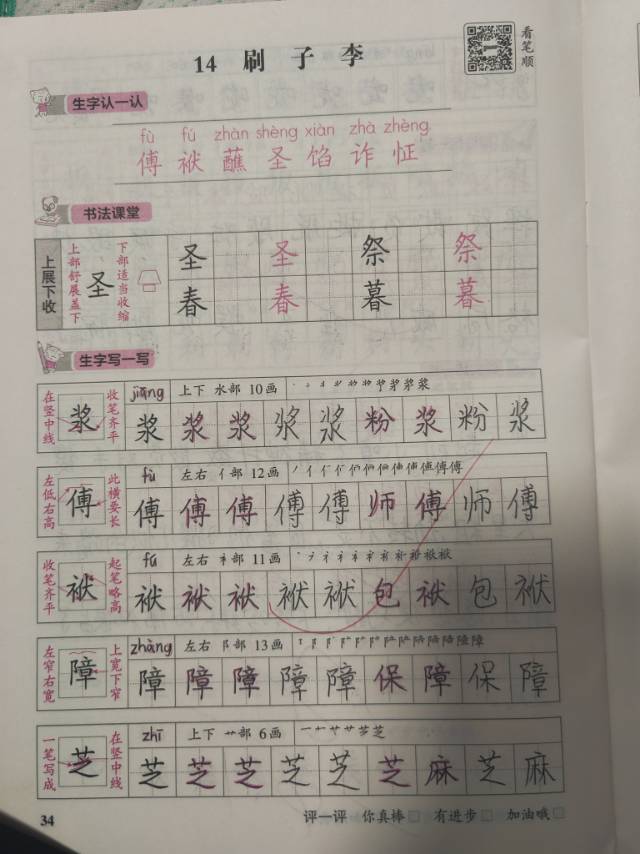 14 刷子李
看笔顺
生字认一认
fù fú zhàn shèng xiàn zhà zhèng
傅 袱 蘸 圣 馅 诈 怔
书法课堂
上展下收
上部舒展盖下
圣
下部适当收缩
圣 圣 祭 祭
春 春 暮 暮
生字写一写
在竖中线
浆
收笔齐平
jiāng 上下 水部 10画
浆 浆 浆 浆 浆 粉 浆 粉 浆
左低右高
傅
此横要长
fù 左右 亻部 12画
傅 傅 傅 傅 傅 师 傅 师 傅
收笔齐平
袱
起笔略高
fú 左右 衤部 11画
袱 袱 袱 袱 袱 包 袱 包 袱
左窄右宽
障
上宽下窄
zhàng 左右 阝部 13画
障 障 障 障 障 保 障 保 障
一笔写成
芝
在竖中线
zhī 上下 艹部 6画
芝 芝 芝 芝 芝 芝 麻 芝 麻
34 评一评 你真棒 有进步 加油哦